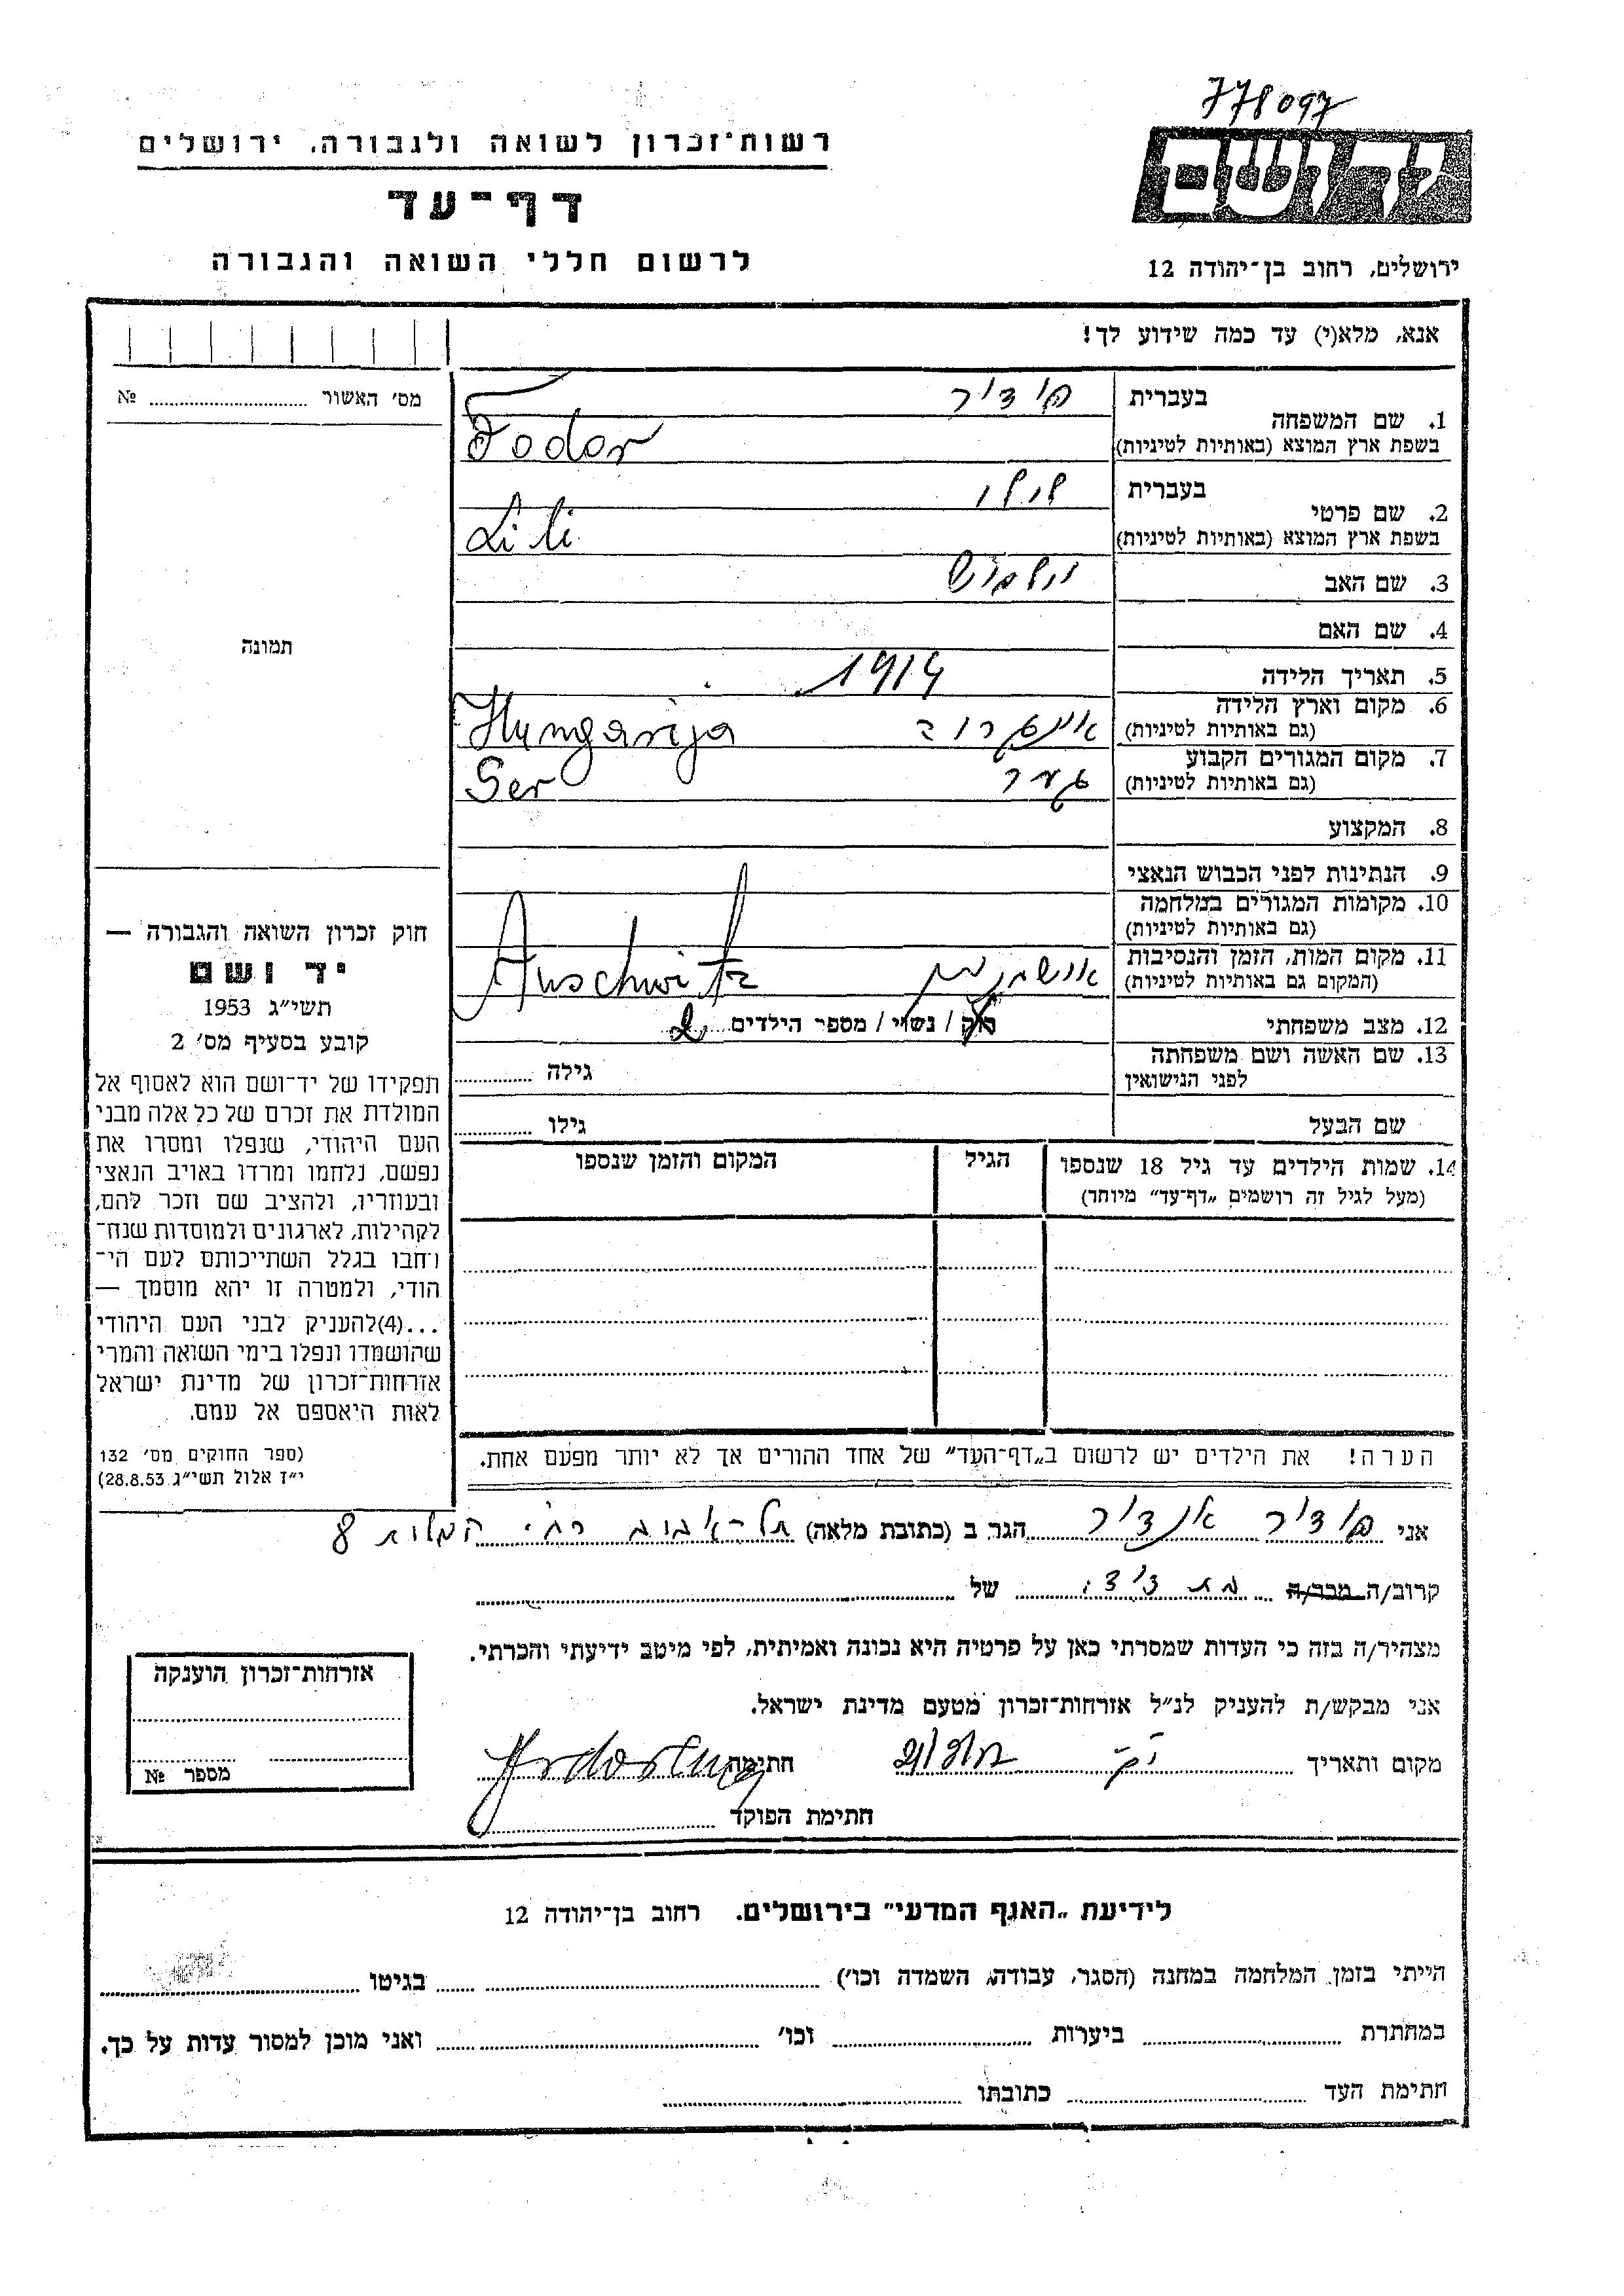 778097
רשות־זכרון לשואה ולגבורה, ירושלים
יד ושם
דף־עד
לרשום חללי השואה והגבורה
ירושלים, רחוב בן־יהודה 12
אנא, מלא(י) עד כמה שידוע לך!
מס׳ האשור № 
בעברית
1. שם המשפחה
בשפת ארץ המוצא (באותיות לטיניות)
פודור
Fodor
בעברית
2. שם פרטי
בשפת ארץ המוצא (באותיות לטיניות)
לילי
Lili
3. שם האב
4. שם האם
תמונה
5. תאריך הלידה 1914
6. מקום וארץ הלידה
(גם באותיות לטיניות)
Hungarija
7. מקום המגורים הקבוע
(גם באותיות לטיניות)
Ger
8. המקצוע
9. הנתינות לפני הכבוש הנאצי
10. מקומות המגורים במלחמה
(גם באותיות לטיניות)
11. מקום המות, הזמן והנסיבות
(המקום גם באותיות לטיניות)
אושוויץ Auschwitz
12. מצב משפחתי רוק / נשוי / מספר הילדים 2
13. שם האשה ושם משפחתה
לפני הנישואין
גילה
שם הבעל גילו
חוק זכרון השואה והגבורה —
יד ושם
תשי״ג 1953
קובע בסעיף מס׳ 2
תפקידו של יד־ושם הוא לאסוף אל
המולדת את זכרם של כל אלה מבני
העם היהודי, שנפלו ומסרו את
נפשם, נלחמו ומרדו באויב הנאצי
ובעוזריו, ולהציב שם וזכר להם,
לקהילות, לארגונים ולמוסדות שנח־
רבו בגלל השתייכותם לעם הי־
הודי, ולמטרה זו יהא מוסמך —
...(4) להעניק לבני העם היהודי
שהושמדו ונפלו בימי השואה והמרי
אזרחות־זכרון של מדינת ישראל
לאות היאספם אל עמם.
(ספר החוקים מס׳ 132
י״ז אלול תשי״ג 28.8.53)
14. שמות הילדים עד גיל 18 שנספו
(מעל לגיל זה רושמים „דף־עד״ מיוחד)
הגיל
המקום והזמן שנספו
הערה! את הילדים יש לרשום ב„דף־העד״ של אחד ההורים אך לא יותר מפעם אחת.
אני פודור אנדור הגר ב (כתובת מלאה) תל־אביב רח׳
קרוב/ה מכר/ה בת דוד של
מצהיר/ה בזה כי העדות שמסרתי כאן על פרטיה היא נכונה ואמיתית, לפי מיטב ידיעתי והכרתי.
אני מבקש/ת להעניק לנ״ל אזרחות־זכרון מטעם מדינת ישראל.
מקום ותאריך
חתימה
חתימת הפוקד
אזרחות־זכרון הוענקה
מספר №
לידיעת „האגף המדעי״ בירושלים. רחוב בן־יהודה 12
הייתי בזמן המלחמה במחנה (הסגר, עבודה, השמדה וכו׳) בגיטו
במחתרת ביערות וכו׳ ואני מוכן למסור עדות על כך.
חתימת העד כתובתו